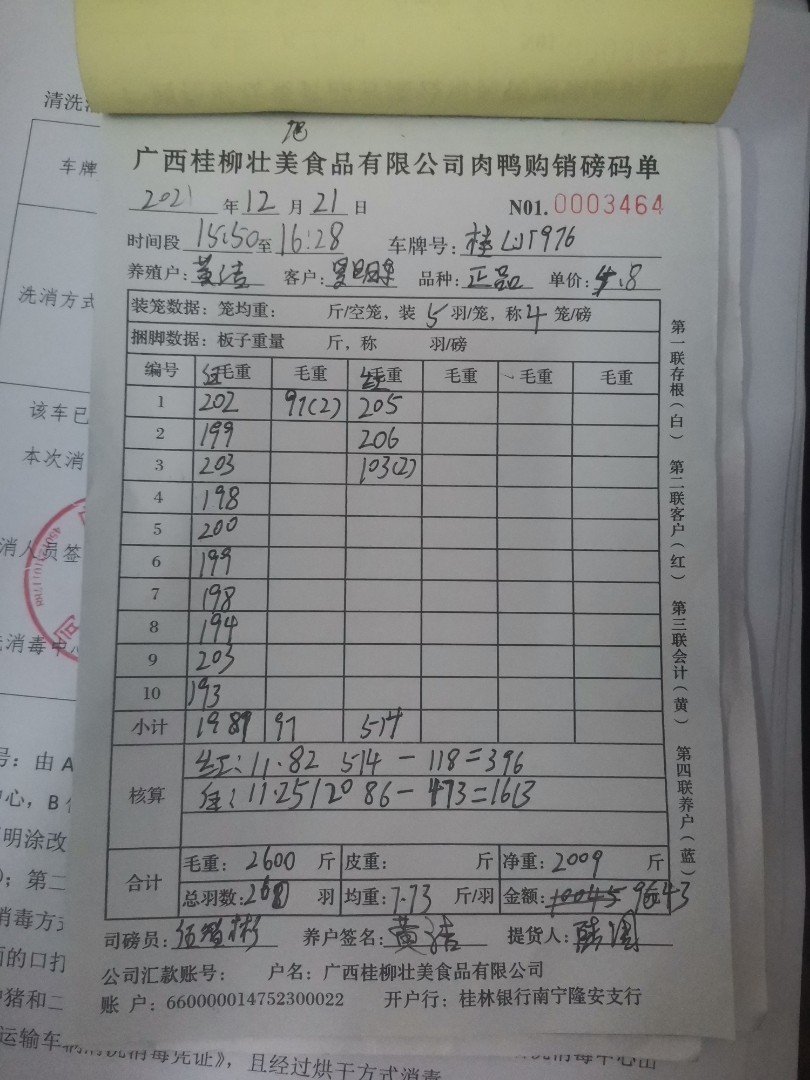 清洗
旭
广西桂柳壮美食品有限公司肉鸭购销磅码单
2021 年 12 月 21 日 N01. 0003464
时间段 15:50 至 16:28 车牌号: 桂
养殖户: 黄洁 客户: 品种: 正品 单价: 4.8
装笼数据: 笼均重: 斤/空笼, 装 5 羽/笼, 称 4 笼/磅
捆脚数据: 板子重量 斤, 称 羽/磅
编号 毛重 毛重 毛重 毛重 毛重 毛重
1 202 97(2) 205
2 199 206
3 203 103(2)
4 198
5 200
6 199
7 198
8 194
9 203
10 193
小计 1989 97 514
核算 11.82 514-118=396
11.25 / 2086-473=1613
合计 毛重: 2600 斤 皮重: 斤 净重: 2009 斤
总羽数: 260 羽 均重: 7.73 斤/羽 金额: 10045 9643
司磅员: 养户签名: 黄洁 提货人:
公司汇款账号: 户名: 广西桂柳壮美食品有限公司
账 户: 660000014752300022 开户行: 桂林银行南宁隆安支行
第一联存根(白) 第二联客户(红) 第三联会计(黄) 第四联养户(蓝)
车牌
洗消方式
该车已
本次消
消人员签
洗消毒中心
号: 由 A
中心, B
明涂改
); 第二
消毒方式
面的口打
猪和二
运输车辆清洗消毒凭证》, 且经过烘干方式消毒